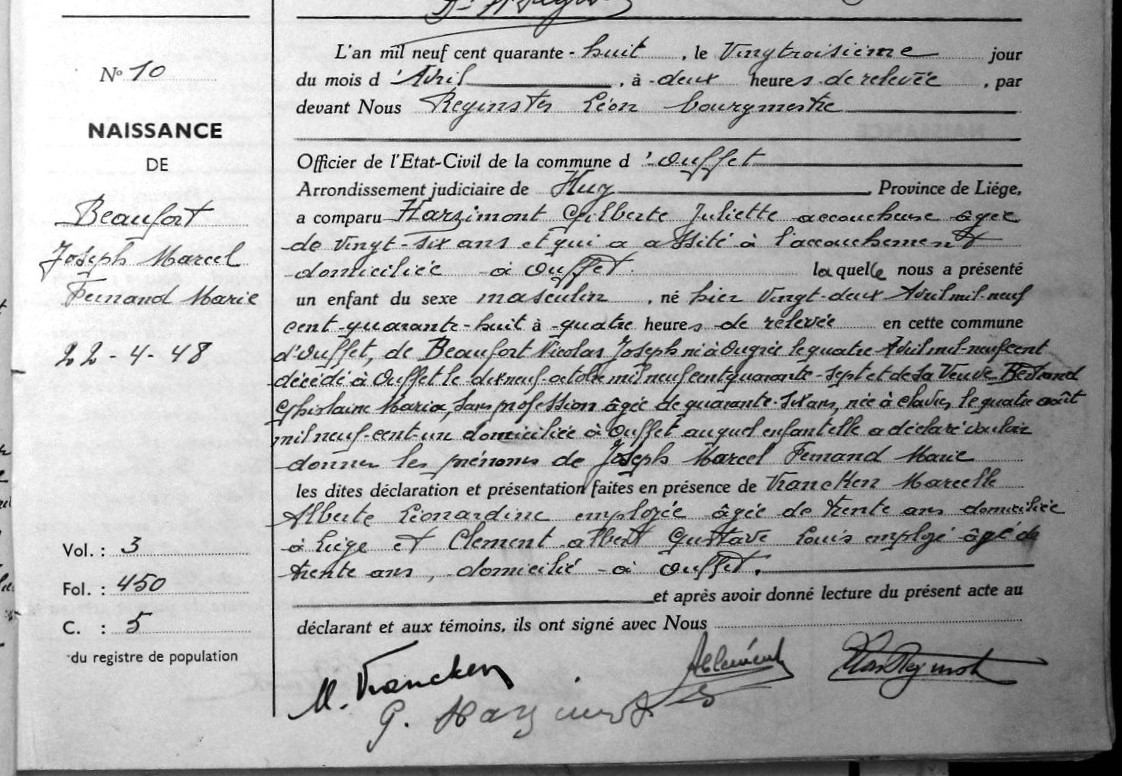 N° 10
NAISSANCE
DE
Beaufort
Joseph Marcel
Fernand Marie
22-4-48
Vol. : 3
Fol. : 450
C. : 5
du registre de population
L'an mil neuf cent quarante-huit, le Vingtroisième jour
du mois d'Avril, à deux heures de relevée, par
devant Nous Reginster Léon bourgmestre
Officier de l'Etat-Civil de la commune d'Ouffet
Arrondissement judiciaire de Huy Province de Liége,
a comparu Harzimont Gilberte Juliette accoucheuse âgée
de vingt-six ans et qui a assité à l'accouchement
domiciliée à Ouffet. laquelle nous a présenté
un enfant du sexe masculin, né hier vingt-deux Avril mil-neuf
cent-quarante-huit à quatre heures de relevée en cette commune
d'Ouffet, de Beaufort Nicolas Joseph né à Ougrée le quatre Avril mil-neuf cent
décédé à Ouffet le dixneuf octobre mil neuf cent quarante-sept et de sa Veuve Bertrand
Ghislaine Maria, sans profession âgée de quarante-six ans, née à Clavier le quatre août
mil neuf-cent-un domiciliée à Ouffet auquel enfant elle a déclaré vouloir
donner les prénoms de Joseph Marcel Fernand Marie
les dites déclaration et présentation faites en présence de Vrancken Marcelle
Alberte Léonardine employée âgée de trente ans domiciliée
à Liège et Clément Albert Gustave Louis employé âgé de
trente ans, domicilié à Ouffet.
et après avoir donné lecture du présent acte au
déclarant et aux témoins, ils ont signé avec Nous
M. Vrancken
G. Harzimont